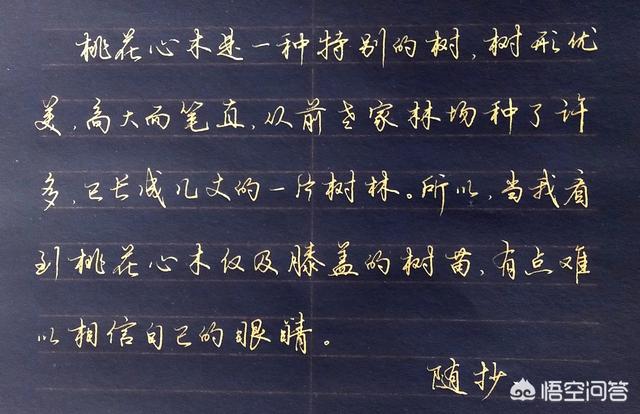 桃花心木是一种特别的树,树形优
美,高大而笔直,从前老家林场种了许
多,已长成几丈的一片树林。所以,当我看
到桃花心木仅及膝盖的树苗,有点难
以相信自己的眼睛。
随抄
悟空问答